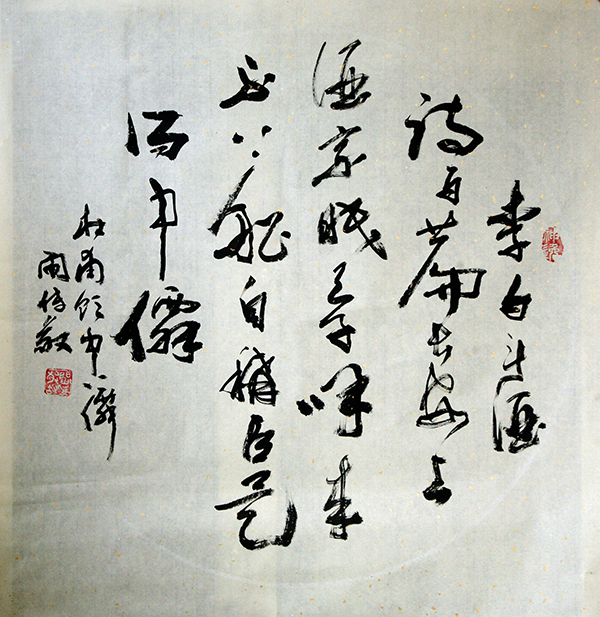 李白斗酒
诗百篇长安上
酒家眠天子呼来
不上船自稱臣是
酒中僊
杜甫饮中八僊
周